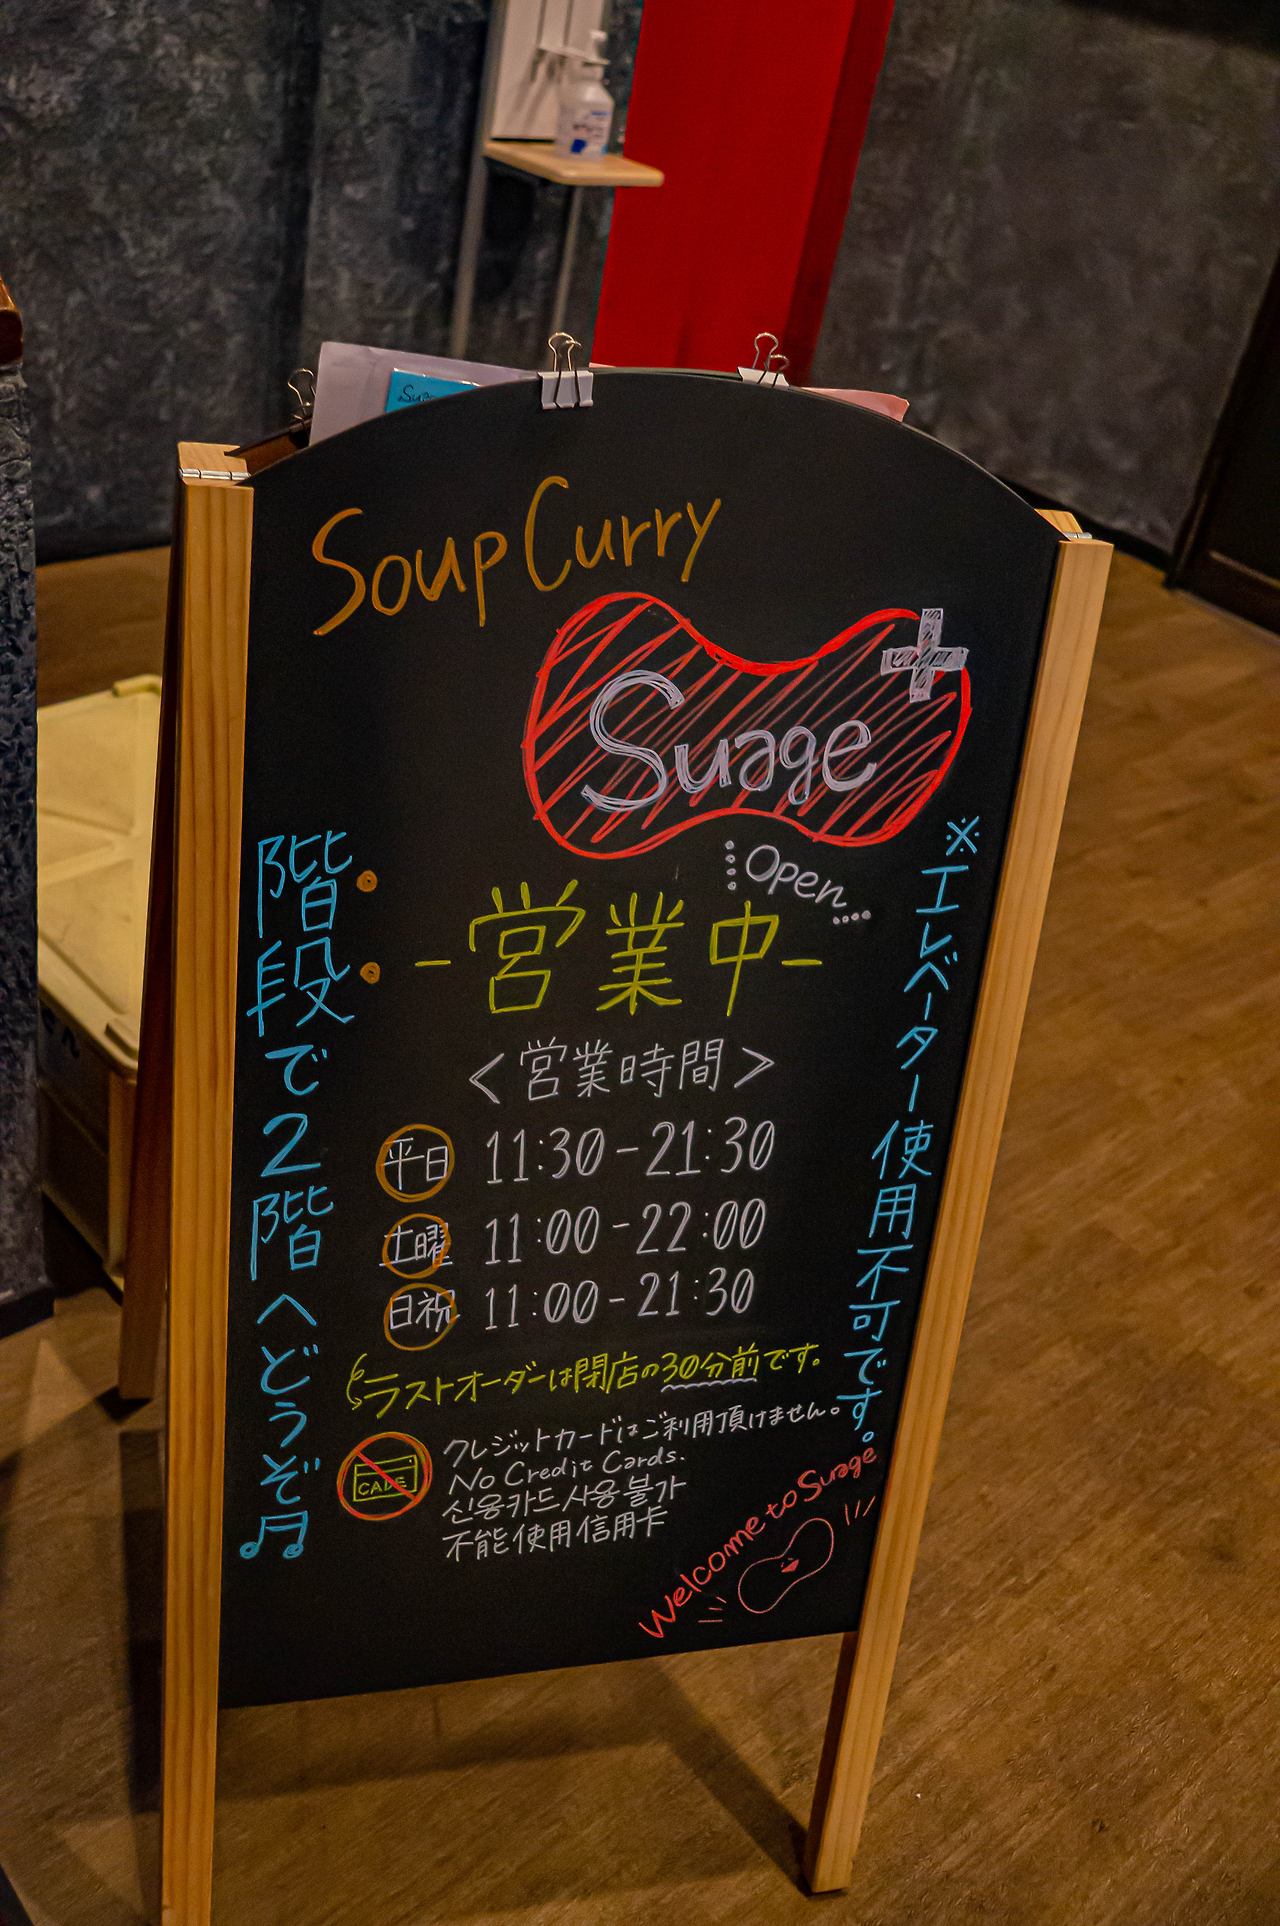 Soup Curry
Suage+
Open
-営業中-
<営業時間>
平日 11:30-21:30
土曜 11:00-22:00
日祝 11:00-21:30
ラストオーダーは閉店の30分前です。
クレジットカードはご利用頂けません。
No Credit Cards.
신용카드 사용 불가
不能使用信用卡
CADE
Welcome to Suage
階段で2階へどうぞ♫
※エレベーター使用不可です。